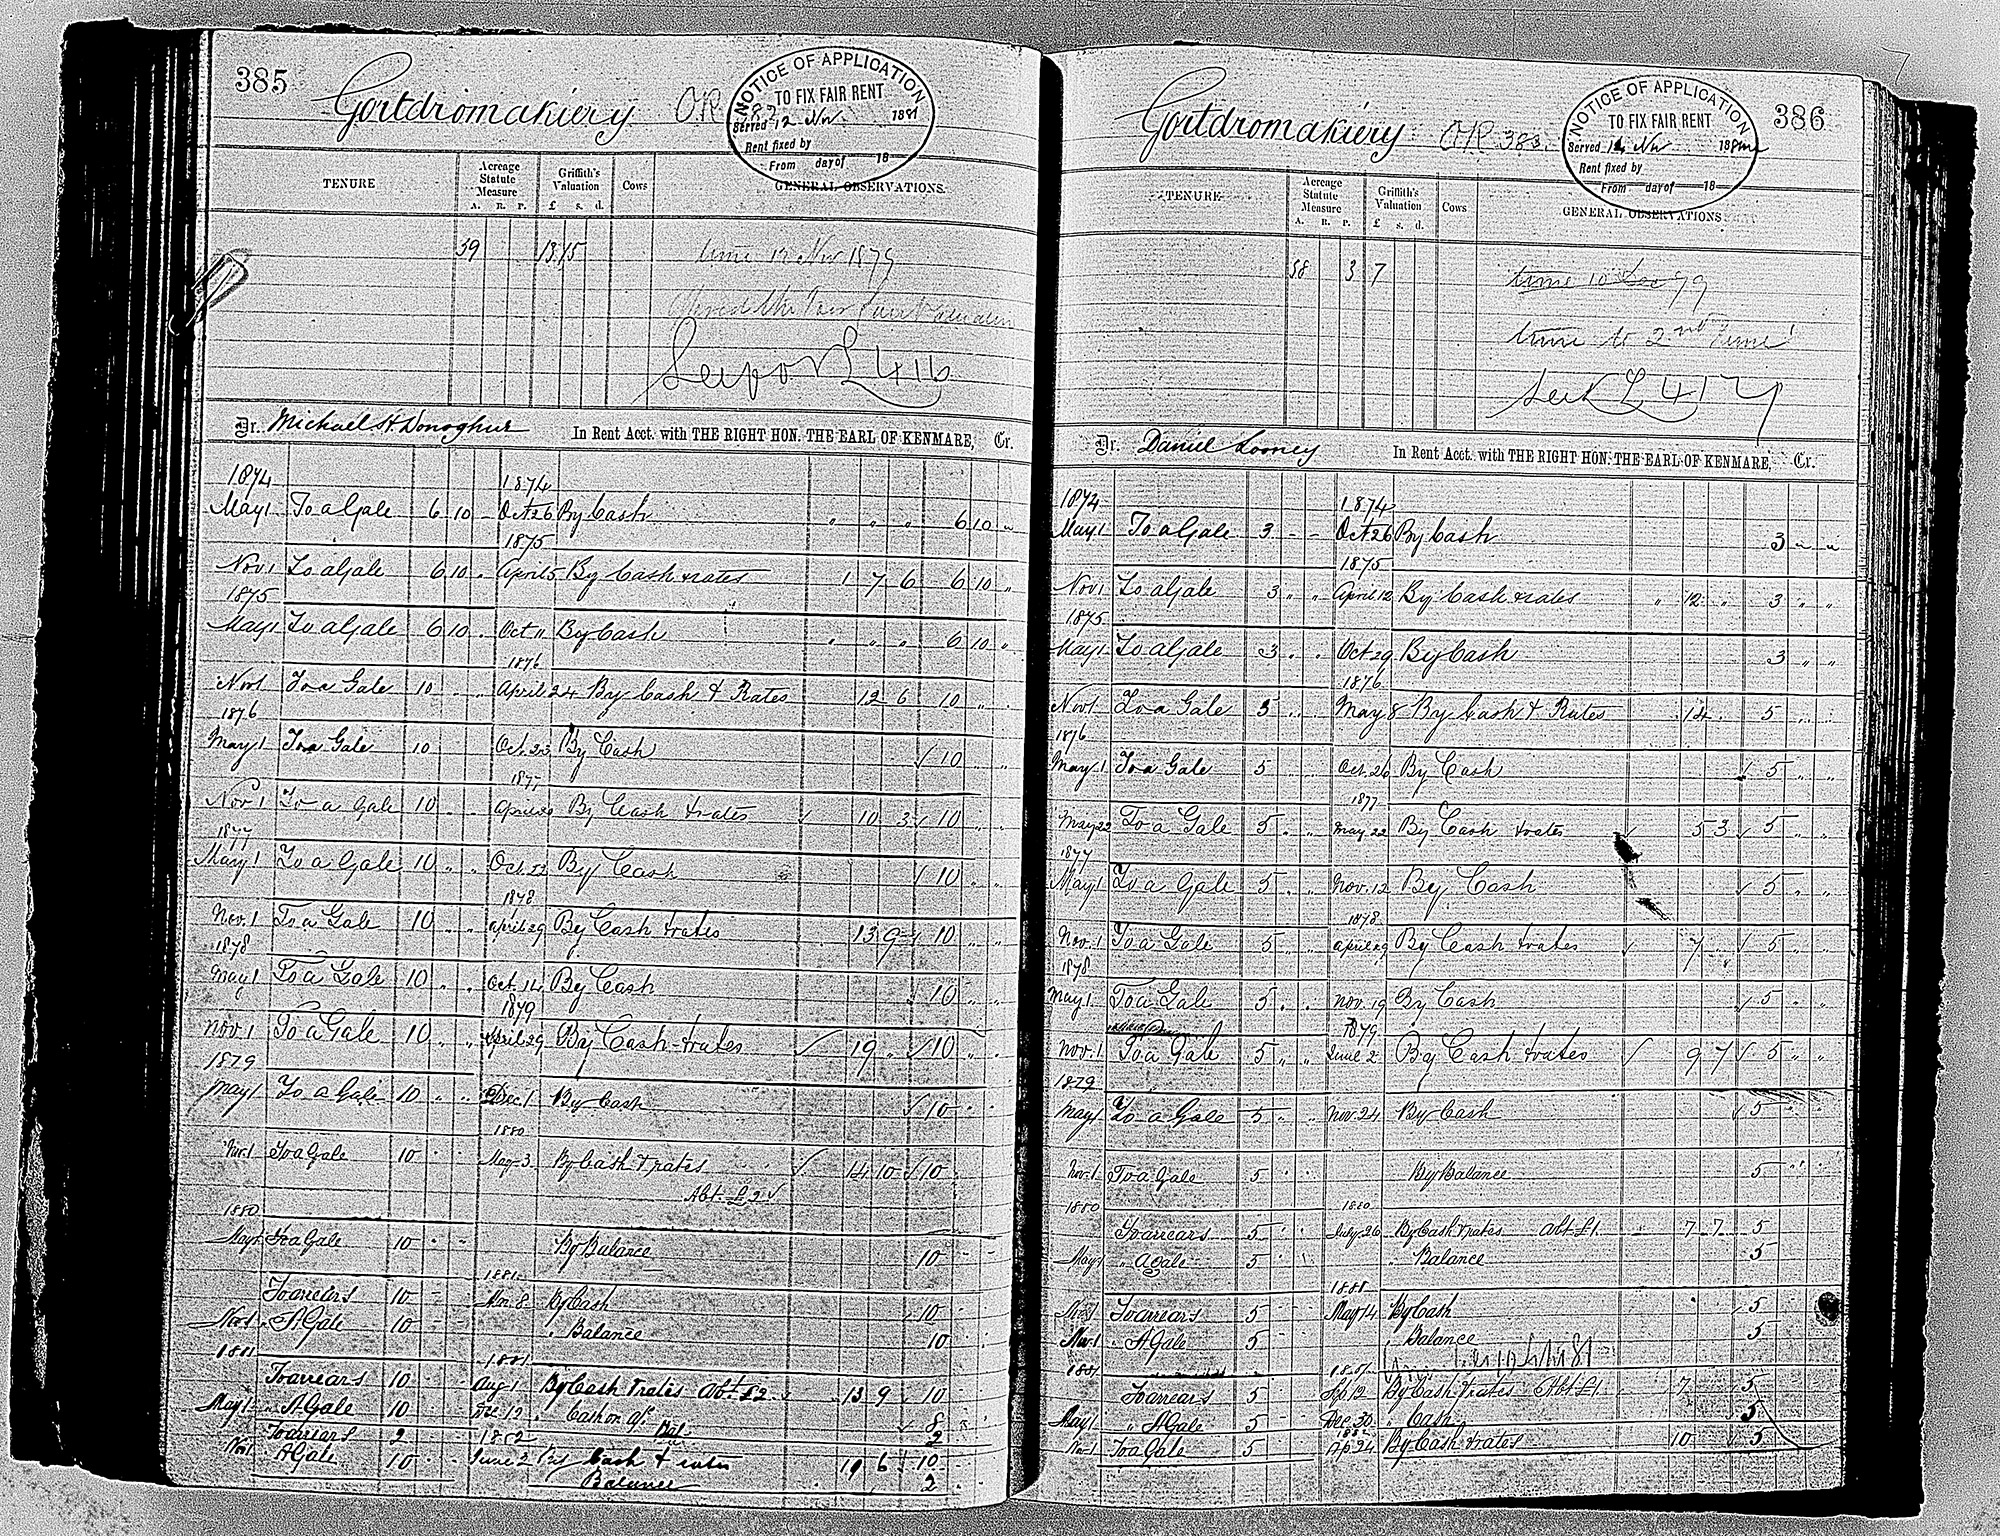 385
Gortdromakiery OR
NOTICE OF APPLICATION
TO FIX FAIR RENT
Served 12 Nov. 1881
Rent fixed by
From day of 18
TENURE
Acreage Statute Measure
A. R. P.
Griffith's Valuation
£ s. d.
Cows
GENERAL OBSERVATIONS.
59 13 15
time 12 Nov 1879
L 416
Dr. Michael H Donoghue In Rent Acct. with THE RIGHT HON. THE EARL OF KENMARE, Cr.
1874 1874
May 1 To a Gale 6 10 - Oct 26 By Cash " " " 6 10 "
1875
Nov 1 To a Gale 6 10 . April 5 By Cash & rates 1 7 6 6 10 "
1875
May 1 To a Gale 6 10 . Oct 11 By Cash " " " 6 10 "
1876
Nov 1 To a Gale 10 . . April 24 By Cash & Rates 12 6 10 . .
1876
May 1 To a Gale 10 Oct. 23 By Cash ✓ 10
1877
Nov 1 To a Gale 10 April By Cash & rates ✓ 10 3 ✓ 10
1877
May 1 To a Gale 10 . . Oct. 22 By Cash ✓ 10
1878
Nov. 1 To a Gale 10 . . April 29 By Cash & rates 13 9 ✓ 10
1878
May 1 To a Gale 10 . . Oct. 14 By Cash 10
1879
Nov. 1 To a Gale 10 . . April 29 By Cash & rates ✓ 19 " ✓ 10
1879
May 1 To a Gale 10 " " Dec 1 By Cash ✓ 10
1880
Nov. 1 To a Gale 10 May 3 By Cash & rates ✓ 14 10 ✓ 10
Abt. £2 ✓
1880
May 1 To a Gale 10 By Balance 10
1881
To arrears 10 8 By Cash 10
Nov 1 " A Gale 10 " Balance 10
1881 1881
To arrears 10 Aug 1 By Cash & rates Abt £2 13 9 10
May 1 " A Gale 10 Dec 12 " Cash on a/c ✓ 8
To arrears 2 1882 Bal 2
Nov 1 A Gale 10 June 2 By Cash & rates 19 6 10
Balance 2
386
Gortdromakiery OR 383
NOTICE OF APPLICATION
TO FIX FAIR RENT
Served 12 Nov 188
Rent fixed by
From day of 18
TENURE
Acreage Statute Measure
A. R. P.
Griffith's Valuation
£ s. d.
Cows
GENERAL OBSERVATIONS
58 3 7
time 10 Dec 79
time to 2nd June
See L 417
Dr. Daniel Looney In Rent Acct. with THE RIGHT HON. THE EARL OF KENMARE, Cr.
1874 1874
May 1 To a Gale 3 - - Oct 26 By Cash 3 " "
1875
Nov 1 To a Gale 3 " " April 12 By Cash & rates " 12 " 3 " "
1875
May 1 To a Gale 3 . . Oct 29 By Cash 3 " "
1876
Nov 1 To a Gale 5 . . May 8 By Cash & Rates 14 . 5
1876
May 1 To a Gale 5 Oct. 26 By Cash ✓ 5 " "
1877
May 22 To a Gale 5 . . May 22 By Cash & rates ✓ 5 3 ✓ 5 " "
1877
May 1 To a Gale 5 . . Nov. 12 By Cash ✓ 5 . .
1878
Nov. 1 To a Gale 5 . . April 29 By Cash & rates ✓ 7 ✓ 5 . .
1878
May 1 To a Gale 5 . . Nov. 19 By Cash ✓ 5 . .
1879
Nov. 1 To a Gale 5 " " June 2 By Cash & rates ✓ 9 7 ✓ 5 " "
1879
May 1 To a Gale 5 Nov. 24 By Cash ✓ 5
Nov. 1 To a Gale 5 By Balance 5
1880 1880
To arrears 5 July 26 By Cash & rates Abt £1 7 7 5
May 1 " A gale 5 " Balance 5
1881
To arrears 5 May 14 By Cash 5
Nov 1 " A Gale 5 " Balance 5
1881 1881
To arrears 5 Sep 12 By Cash & rates Abt £1 7 5
May 1 " A Gale 5 Dec. 30 " Cash 5
1882
Nov 1 To a Gale 5 Ap. 24 By Cash & rates 10 5